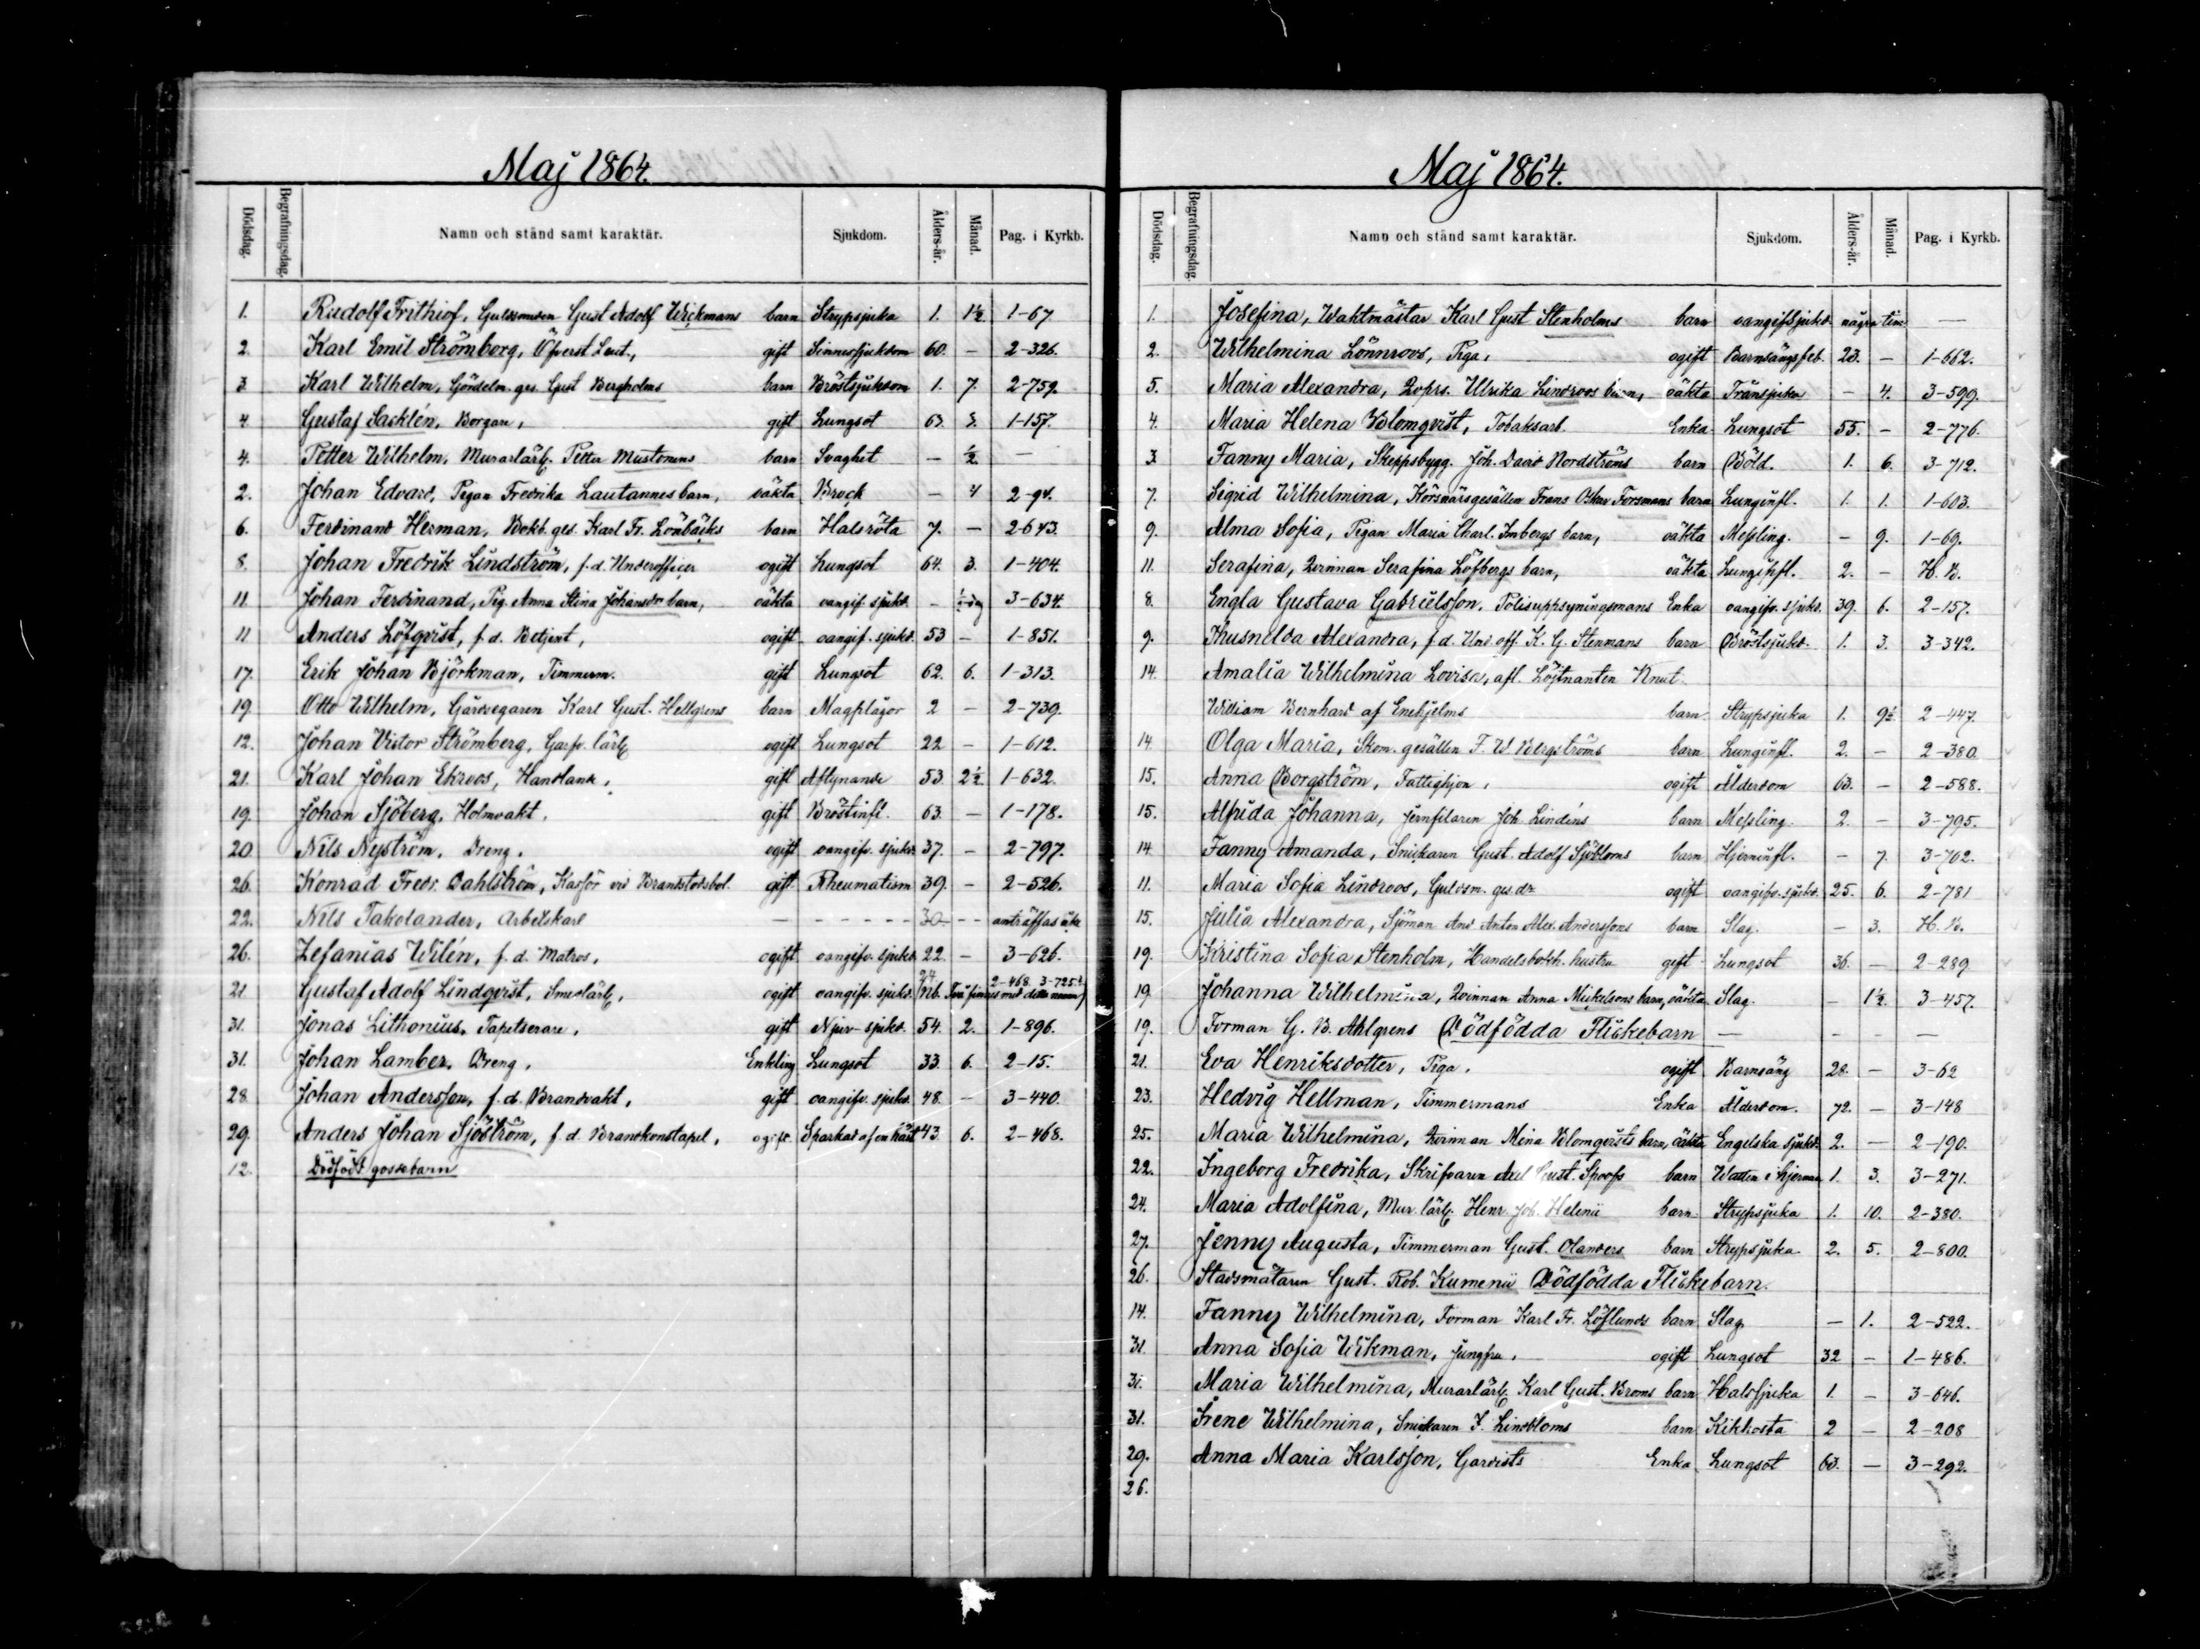 Maj 1864.
Dödsdag. Begrafningsdag. Namn och stånd samt karaktär. Sjukdom. Ålders-år. Månad. Pag. i Kyrkb.
1. Rudolf Frithiof, Guldsmeden Gust Adolf Wickmans barn Strypsjuka 1. 1½ 1-67
2. Karl Emil Strömborg, Öfverst Leut., gift Sinnessjukdom 60. - 2-326.
3. Karl Wilhelm, Gördelm. ges. Gust Bergholms barn Bröstsjukdom 1. 7. 2-759.
4. Gustaf Sacklén, Borgare, gift Lungsot 63. 3. 1-157.
4. Petter Wilhelm, Murarlärl. Petter Mustonens barn Svaghet - ½ -
2. Johan Edvard, Pigan Fredrika Lautannes barn, oäkta Brock - 4 2-94.
6. Ferdinand Herman, Bokb. ges. Karl Fr. Lönbäcks barn Halsröta 7. - 2-643.
8. Johan Fredrik Lindström, f.d. Underofficer ogift Lungsot 64. 3. 1-404.
11. Johan Ferdinand, Pig. Anna Stina Johansdr barn, oäkta oangif. sjukd. - ½ dag 3-634.
11 Anders Löfqvist, f.d. Betjent, ogift oangif. sjukd. 53 - 1-851.
17. Erik Johan Björkman, Timmerm. gift Lungsot 62. 6. 1-313.
19. Otto Wilhelm, Gårdsegaren Karl Gust. Hellgrens barn Magplågor 2 - 2-739.
12. Johan Victor Strömberg, Garfv. lärl. ogift Lungsot 22 - 1-612.
21. Karl Johan Ekroos, Handlande, gift Aftynande 53 2½. 1-632.
19. Johan Sjöberg, Holmvakt, gift Bröstinfl. 63. - 1-178.
20 Nils Nyström, Dreng, ogift oangifv. sjukd. 37. - 2-797.
26. Konrad Fredr. Dahlström, Kassör vid Brandstodsbol. gift Rheumatism 39. - 2-526.
22. Nils Takolander, Arbetskarl - - - - - - 30 - - anträffas icke
26. Zefanias Wilén, f.d. Matros, ogift oangifv. sjukd. 22. - 3-626.
21 Gustaf Adolf Lindqvist, Smedlärl., ogift oangifv. sjukd. 24 Nb. Två finnes med detta namn 2-468. 3-725.
31. Jonas Lithonius, Tapetserare, gift Njur-sjukd. 54. 2. 1-896.
31. Johan Lamber, Dreng, Enkling Lungsot 33. 6. 2-15.
28. Johan Andersson, f.d. Brandvakt, gift oangifv. sjukd. 48. - 3-440.
29. Anders Johan Sjöström, f.d. Brandkonstapel, ogift Sparkad af en häst 43. 6. 2-468.
12. Dödfödt gossebarn
Maj 1864.
Dödsdag. Begrafningsdag. Namn och stånd samt karaktär. Sjukdom. Ålders-år. Månad. Pag. i Kyrkb.
1. Josefina, Waktmästar Karl Gust Stenholms barn oangif. sjukd. några tim. -
2. Wilhelmina Lönnroos, Piga, ogift Barnsängsfeb. 23. - 1-662.
5. Maria Alexandra, Qvprs. Ulrika Lindroos barn, oäkta Trånsjuka - 4. 3-599.
4. Maria Helena Blomqvist, Tobaksarb. Enka Lungsot 55. - 2-776.
3. Fanny Maria, Skeppsbygg. Joh. David Nordströms barn Böld. 1. 6. 3-712.
7. Sigrid Wilhelmina, Körsnärsgesällen Frans Oskar Forsmans barn Lunginfl. 1. 1. 1-603.
9. Alma Sofia, Pigan Maria Charl. Imbergs barn, oäkta Messling. - 9. 1-69.
11. Serafina, Qvinnan Serafina Löfbergs barn, oäkta Lunginfl. 2. - H. B.
8. Engla Gustava Gabrielsson, Polisuppsyningsmans Enka oangifv. sjukd. 39. 6. 2-157.
9. Thusnelda Alexandra, f.d. Und. off. K. G. Stenmans barn Bröstsjukd. 1. 3. 3-342.
14. Amalia Wilhelmina Lovisa, afl. Löjtnanten Knut
William Bernhard af Enehjelms barn Strypsjuka 1. 9½ 2-447.
14. Olga Maria, Skom. gesällen F. W. Bergströms barn Lunginfl. 2. - 2-380.
15. Anna Borgström, Fattighjon, ogift Ålderdom 63. - 2-588.
15. Alfrida Johanna, Jernfilaren Joh. Lindéns barn Messling. 2. - 3-795.
14. Fanny Amanda, Snickaren Gust. Adolf Sjöbloms barn Hjerninfl. - 7. 3-762.
11. Maria Sofia Lindroos, Guldsm. ges. dr ogift oangifv. sjukd. 25. 6. 2-781
15. Julia Alexandra, Sjöman And Anton Alex. Anderssons barn Slag. - 3. H. B.
19. Kristina Sofia Stenholm, Handelsbokh. hustru gift Lungsot 36. - 2-289
19. Johanna Wilhelmina, Qvinnan Anna Mickelsons barn, oäkta Slag. - 1½ 3-457.
19. Forman G. B. Ahlgrens Dödfödda Flickebarn - - - -
21. Eva Henriksdotter, Piga, ogift Barnsäng 28. - 3-62
23. Hedvig Hellman, Timmermans Enka Ålderdom. 72. - 3-148
25. Maria Wilhelmina, Qvinnan Mina Blomqvists barn, oäkta Engelska sjukd. 2. - 2-190.
22. Ingeborg Fredrika, Skrifvaren Axel Gust. Spoofs barn Watten i hjernan 1. 3. 3-271.
24. Maria Adolfina, Mur. lärl. Henr. Joh. Helenii barn Strypsjuka 1. 10. 2-380.
27. Jenny Augusta, Timmerman Gust. Olanders barn Strypsjuka 2. 5. 2-800.
26. Stadsmätaren Gust. Rob. Kumenii Dödfödda Flickebarn.
14. Fanny Wilhelmina, Forman Karl Fr. Löflunds barn Slag - 1. 2-522.
31. Anna Sofia Wikman, Jungfru, ogift Lungsot 32 - 1-486.
31. Maria Wilhelmina, Murarlärl. Karl Gust. Broms barn Halssjuka 1. - 3-646.
31. Irene Wilhelmina, Snickaren F. Lindbloms barn Kikhosta 2 - 2-208
29. Anna Maria Karlsson, Gardists Enka Lungsot 63. - 3-292.
26.